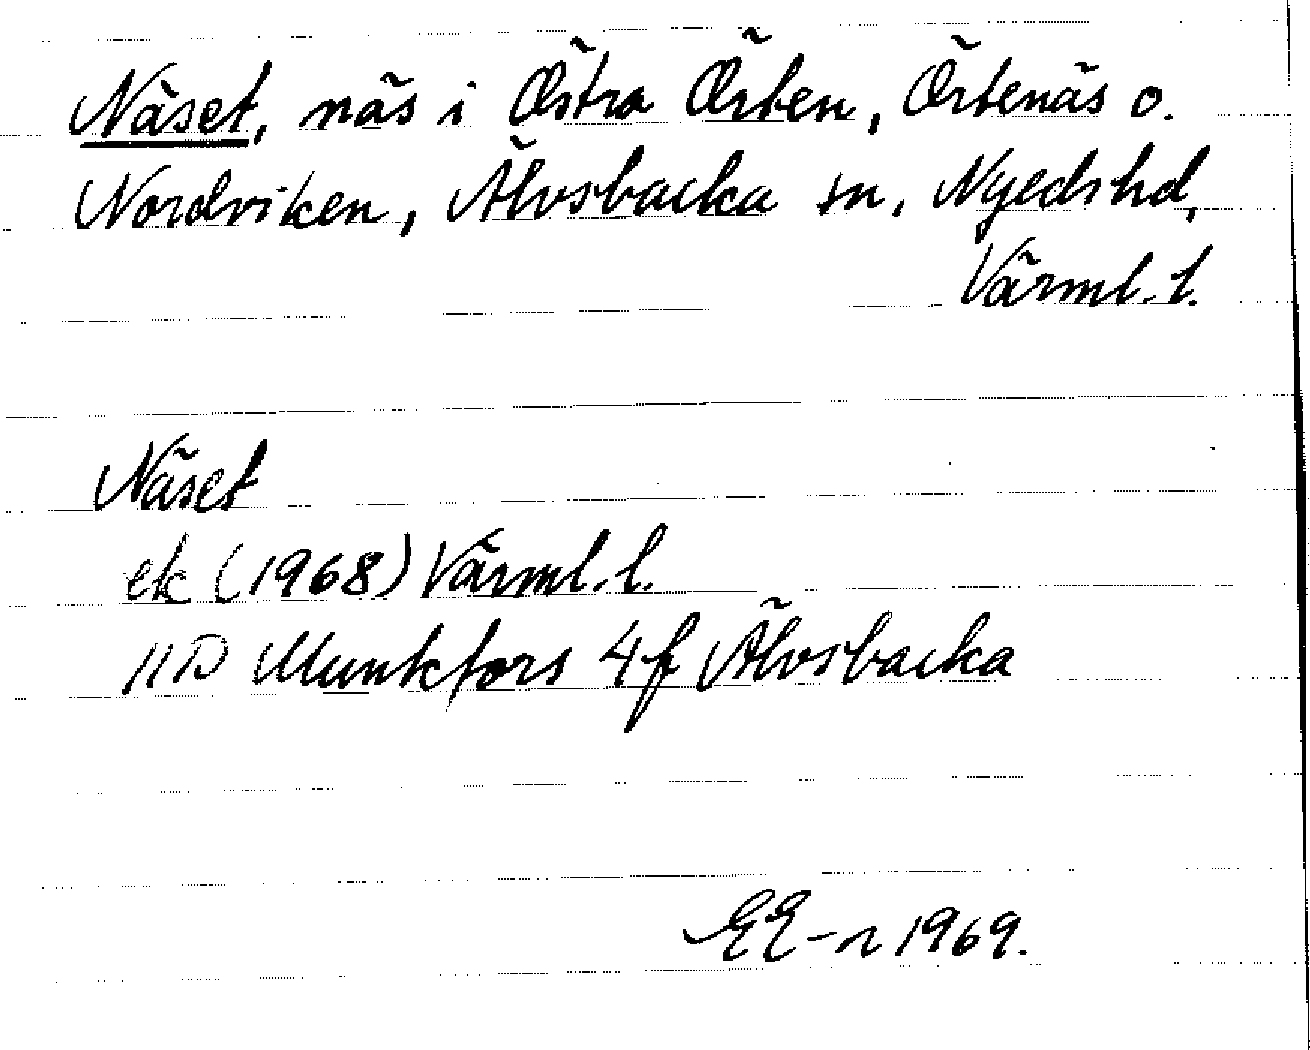 Näset, näs i Östra Örten, Örtenäs o.
Nordviken, Älvsbacka sn, Nyeds hd,
Värml. l.
Näset
ek (1968) Värml. l.
11D Munkfors 4f Älvsbacka
EE-n 1969.